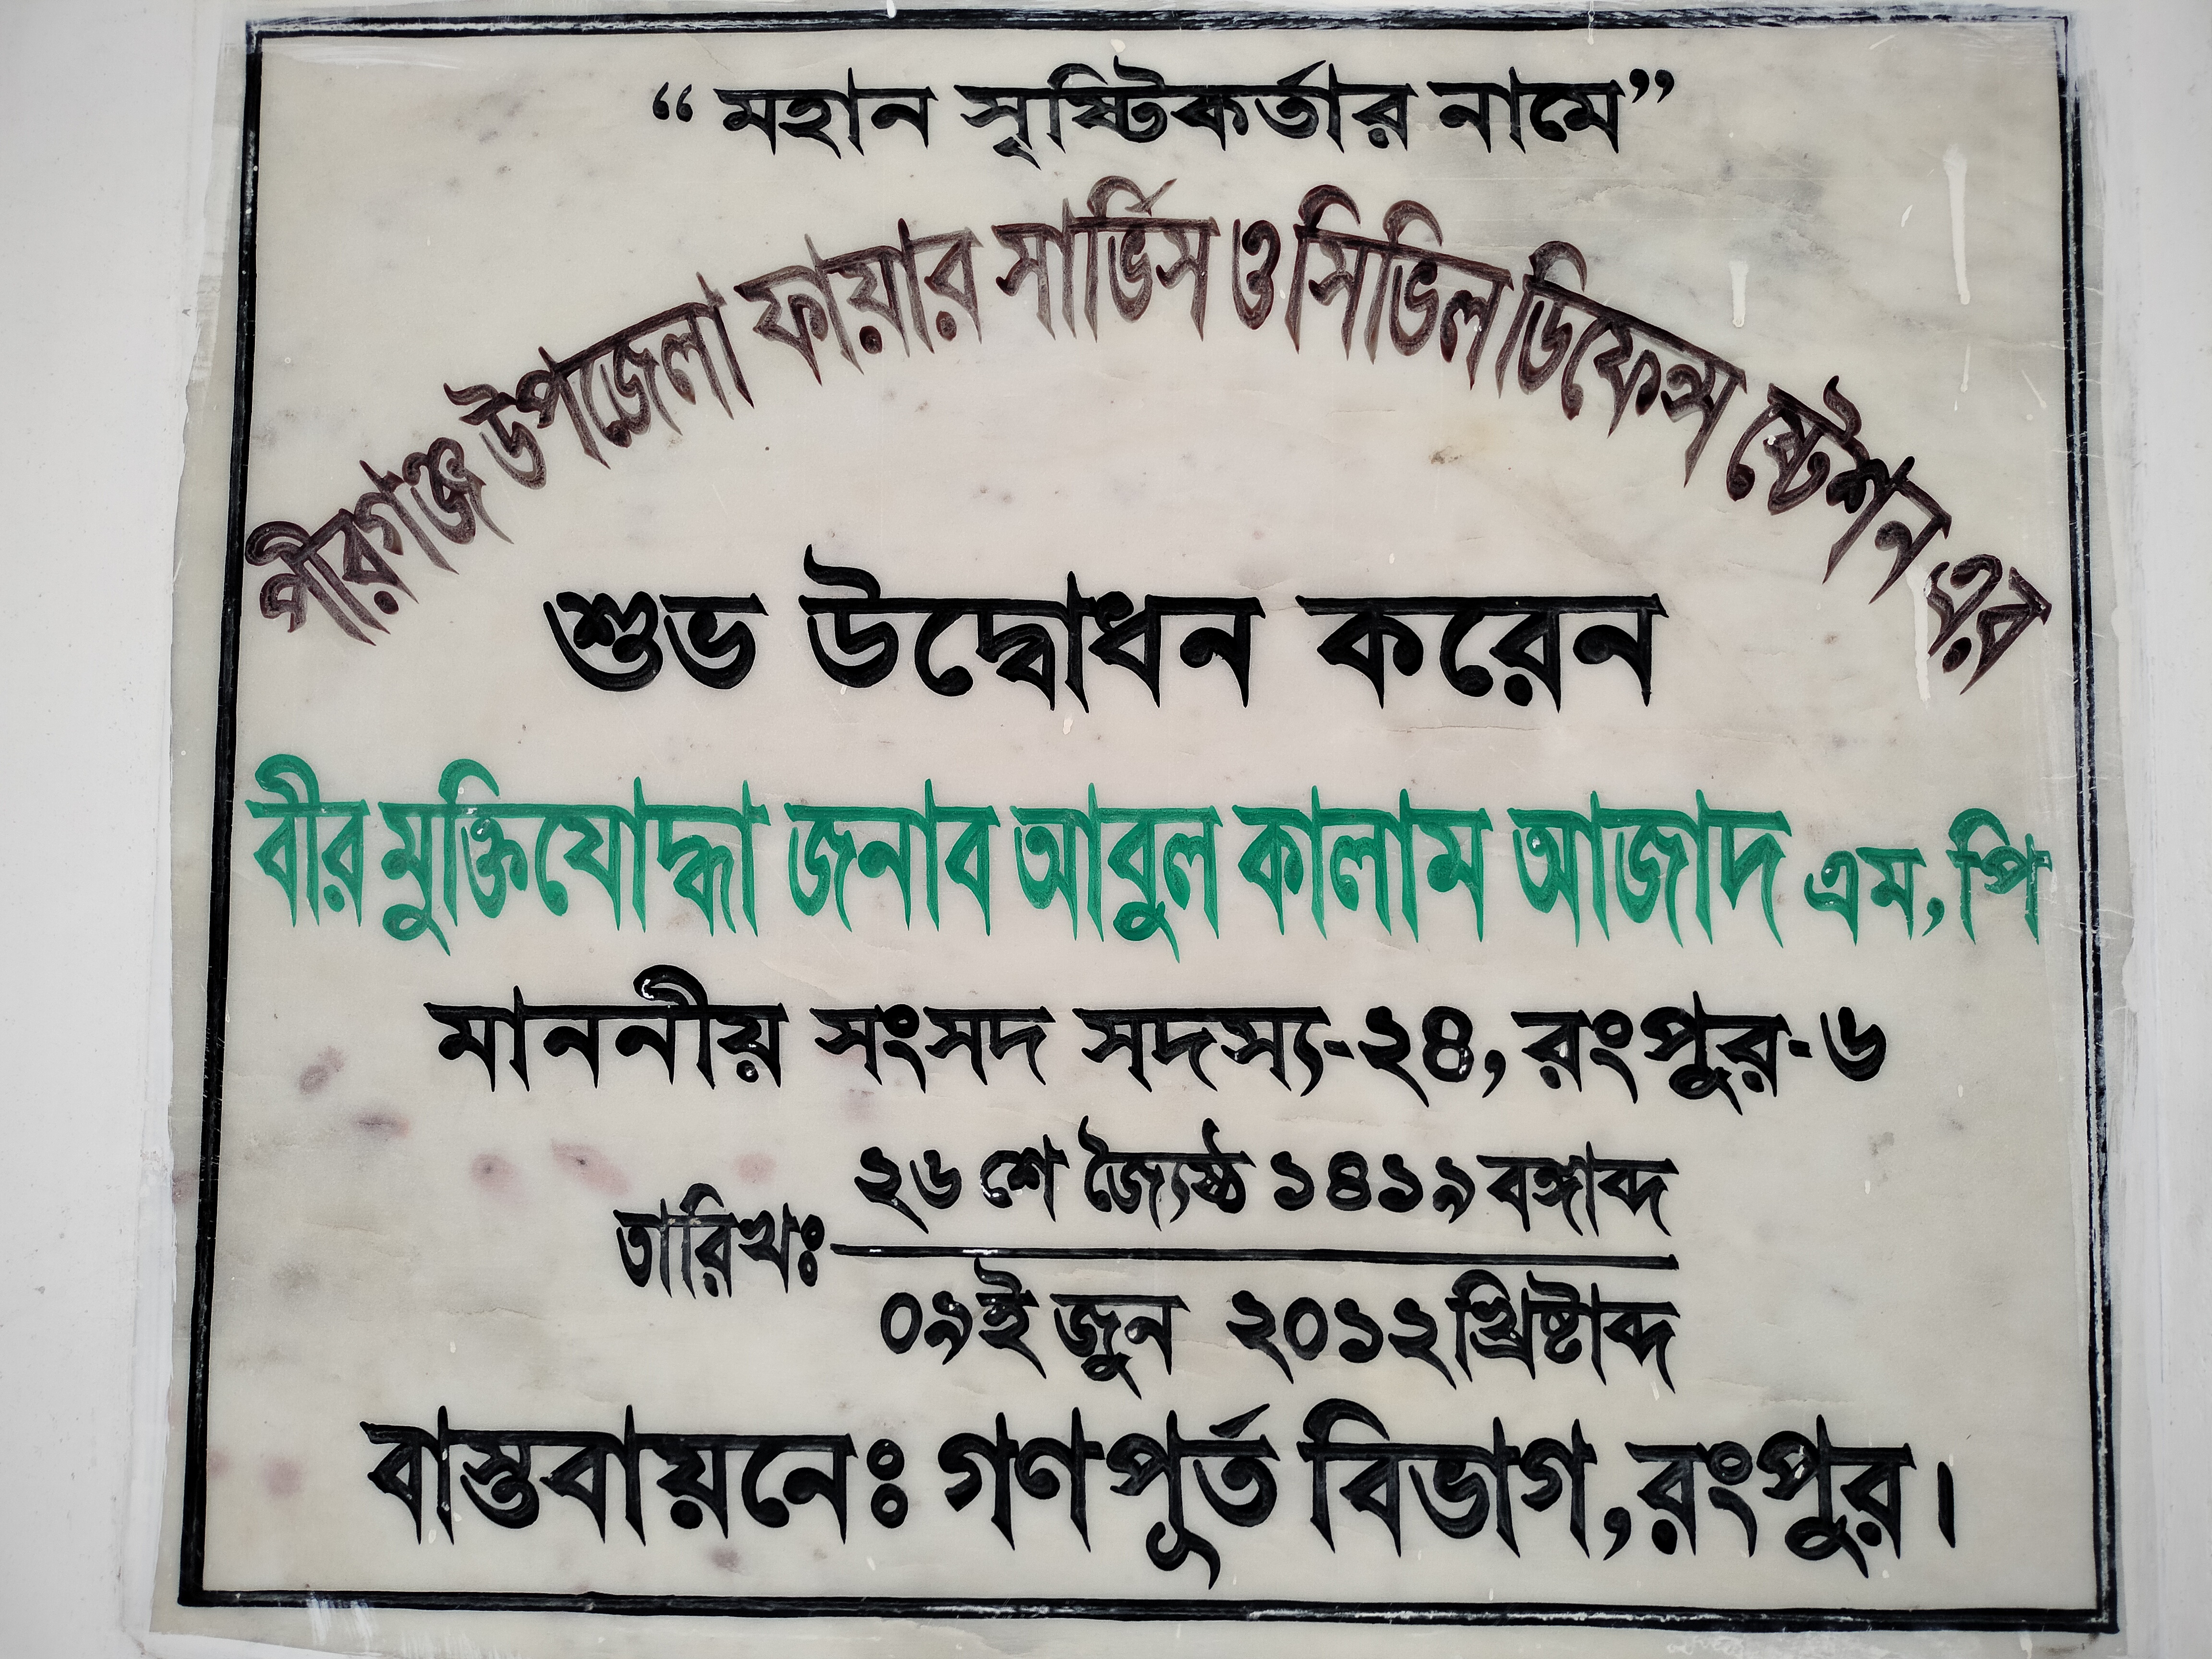 “মহান সৃষ্টিকর্তার নামে”
পীরগঞ্জ উপজেলা ফায়ার সার্ভিস ও সিভিল ডিফেন্স ষ্টেশন এর
শুভ উদ্বোধন করেন
বীর মুক্তিযোদ্ধা জনাব আবুল কালাম আজাদ এম,পি
মাননীয় সংসদ সদস্য-২৪, রংপুর-৬
২৬ শে জ্যৈষ্ঠ ১৪১৯ বঙ্গাব্দ
তারিখঃ
০৯ই জুন ২০১২ খ্রিষ্টাব্দ
বাস্তবায়নেঃ গণপূর্ত বিভাগ, রংপুর।